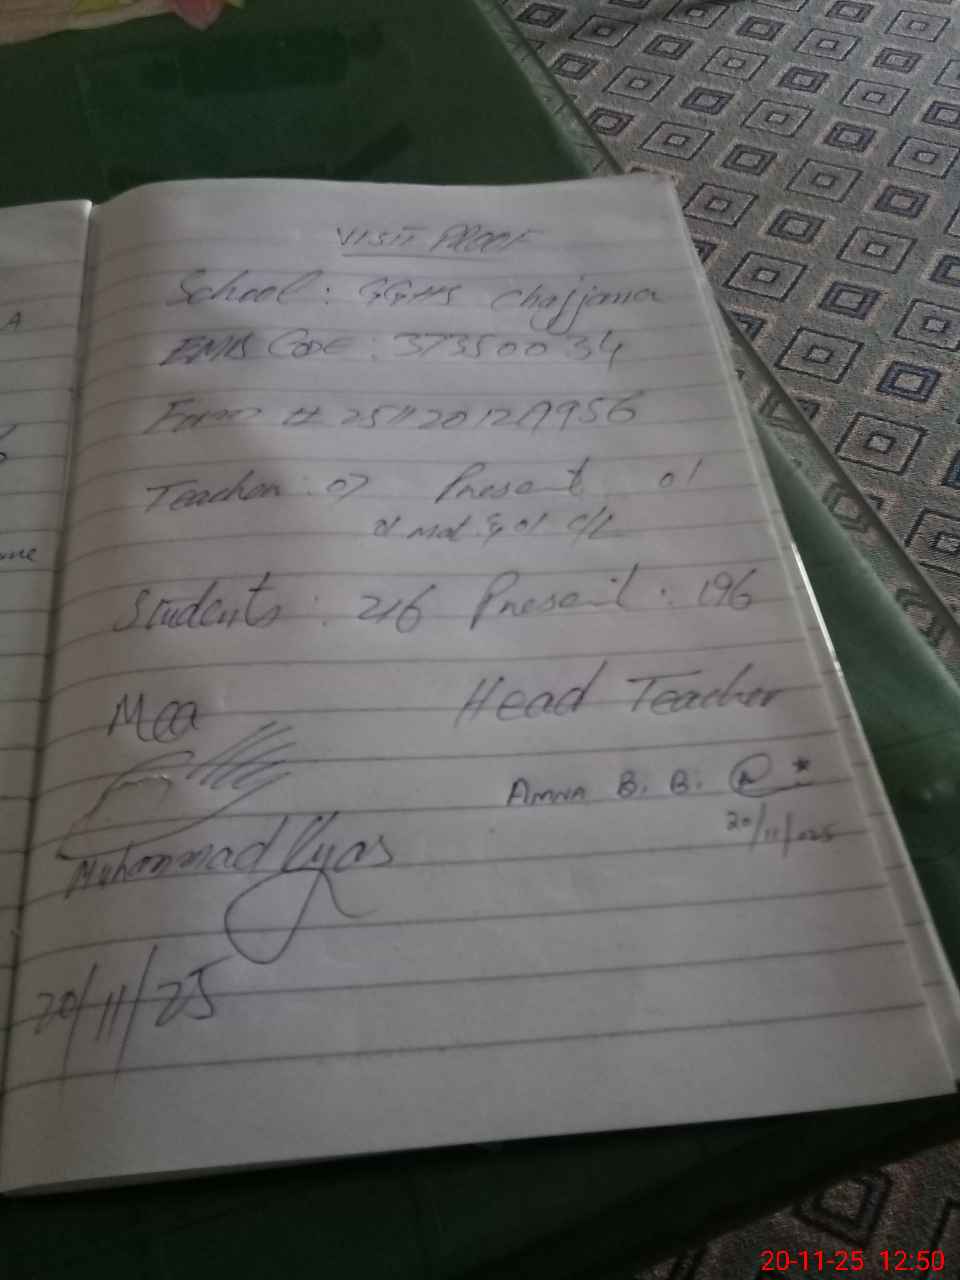 VISIT PROOF
School : GGHS Chajjana
EMIS Code : 37350034
# 251120120956
Teacher : 07 Present 01
& 01 C/L
Students : 216 Present : 196
Mea
Head Teacher
AMNA B. B.
20/11/025
Muhammad Ilyas
20/11/25
A
me
20-11-25 12:50